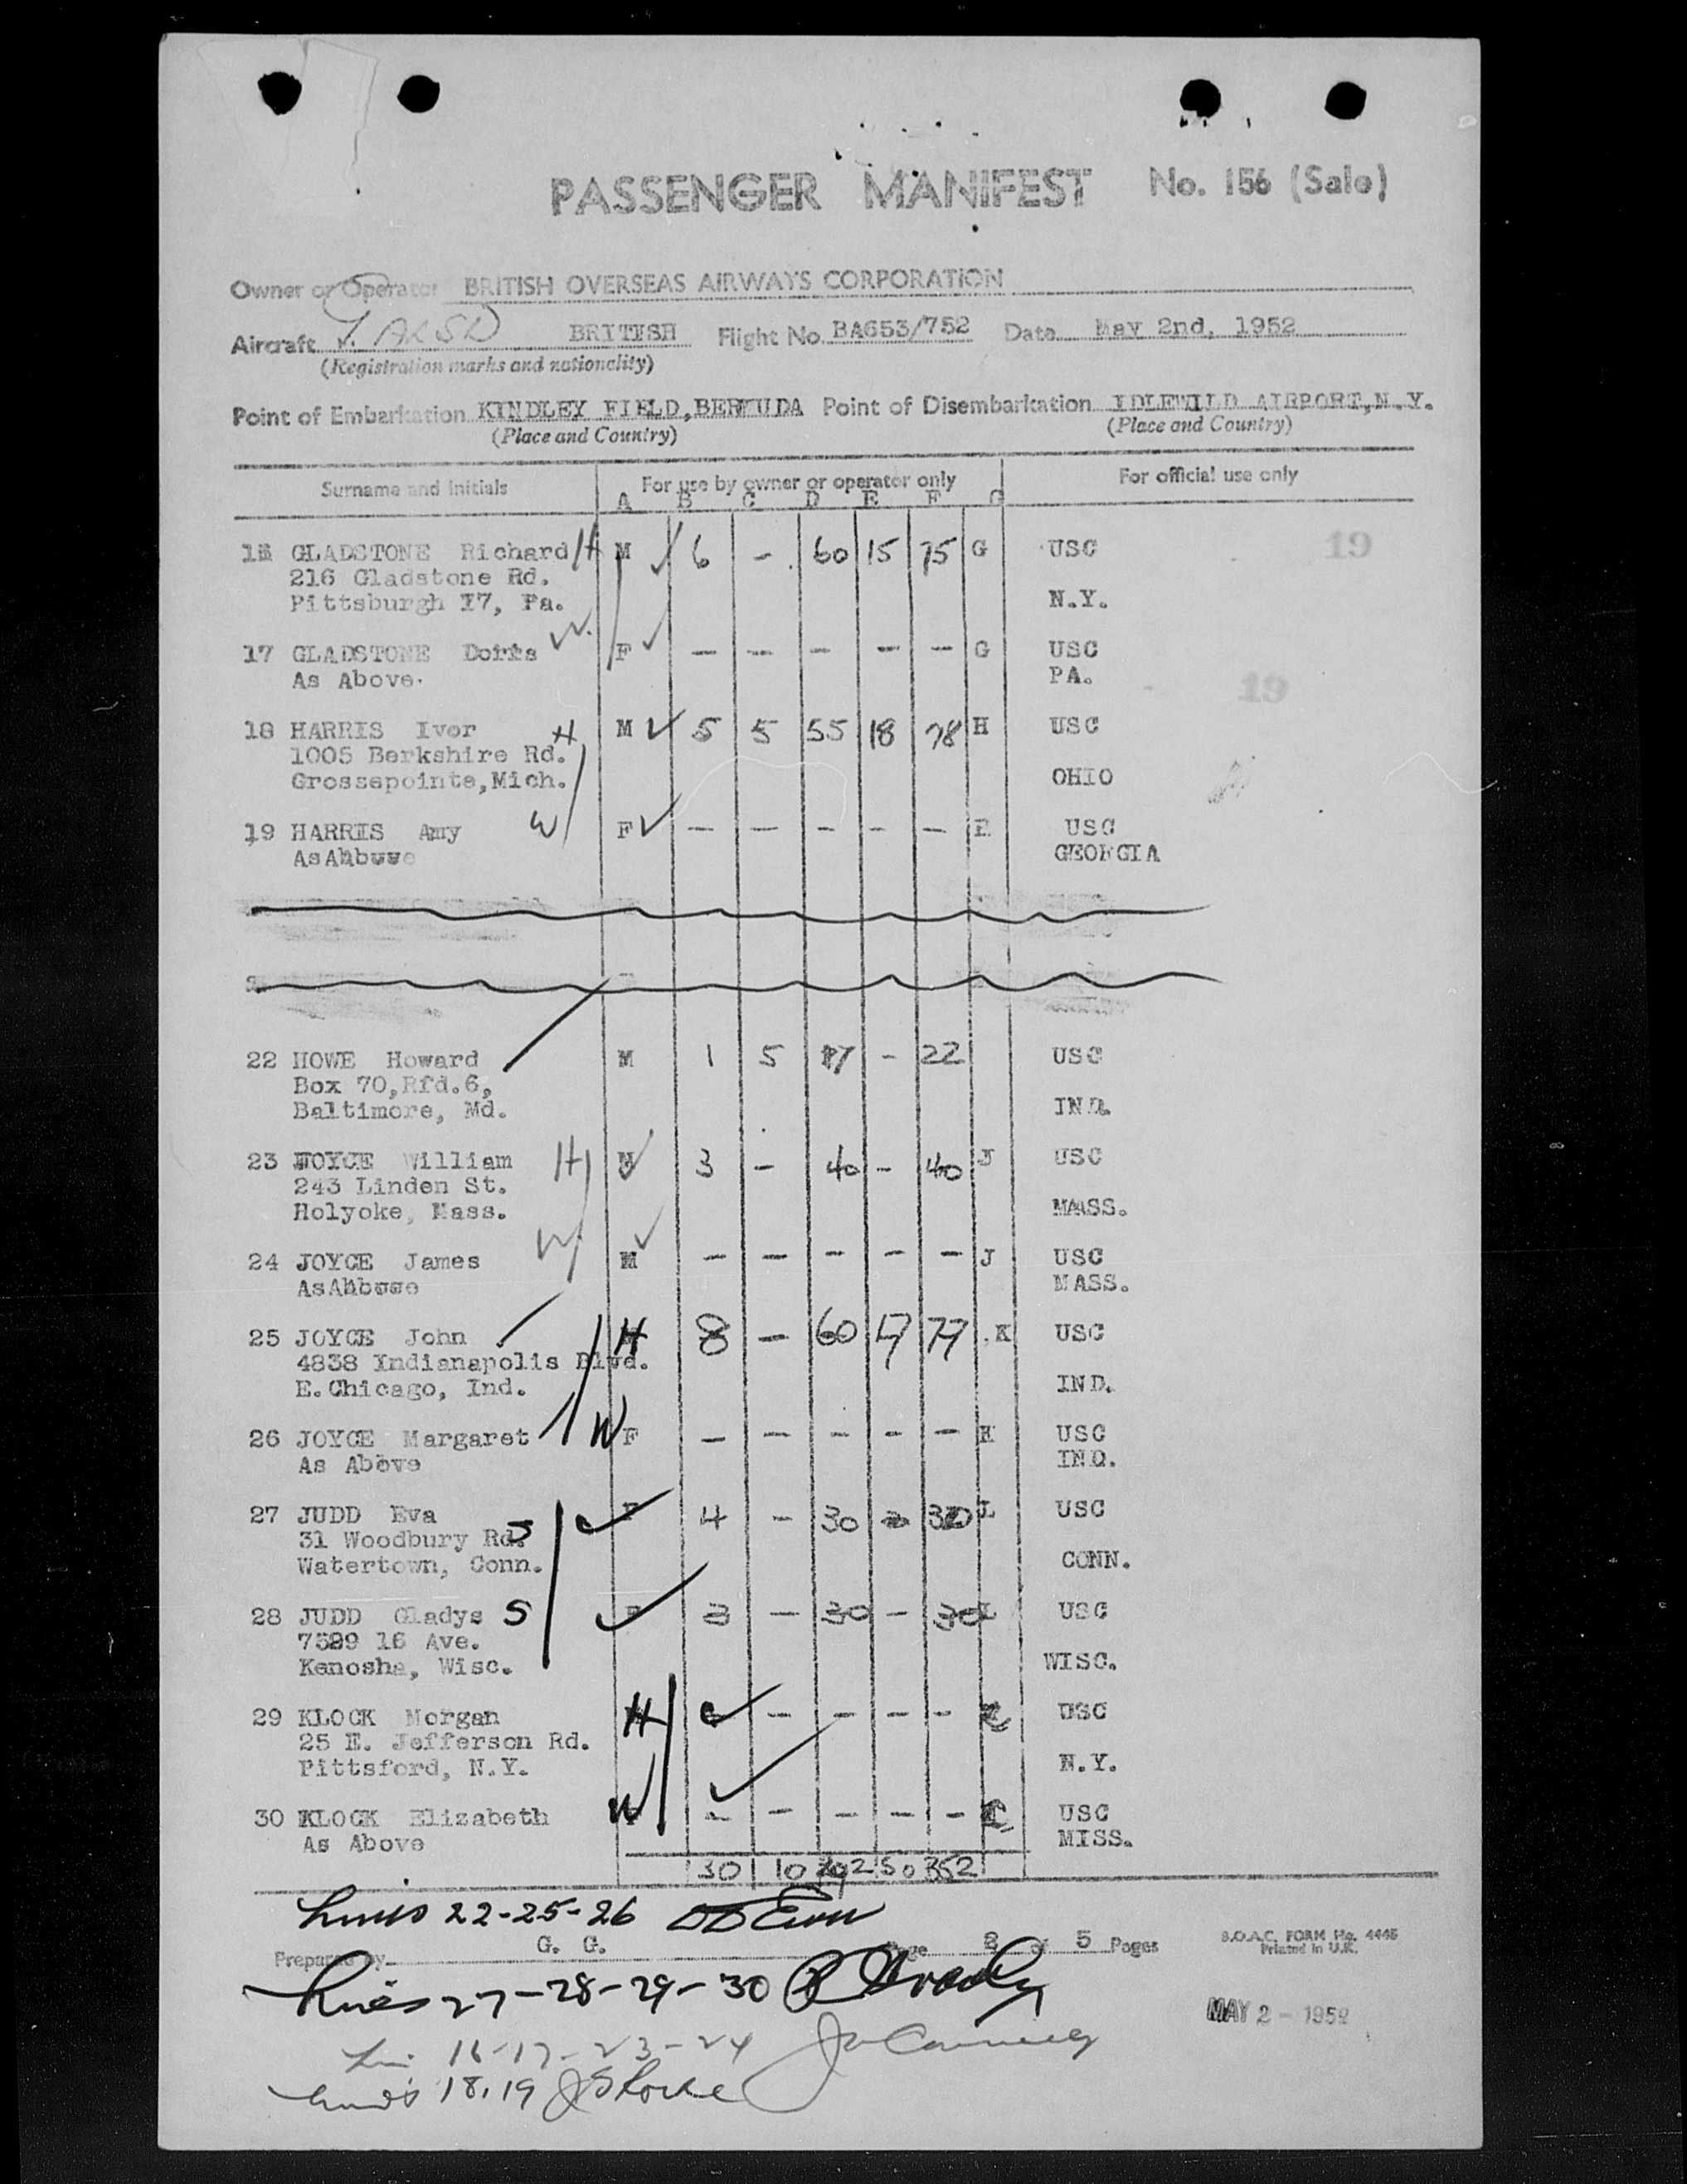 PASSENGER MANIFEST No. 156 (Sale)
Owner or Operator BRITISH OVERSEAS AIRWAYS CORPORATION
Aircraft BRITISH Flight No. BA653/752 Date May 2nd, 1952
(Registration marks and nationality)
Point of Embarkation KINDLEY FIELD, BERMUDA Point of Disembarkation IDLEWILD AIRPORT, N.Y.
(Place and Country) (Place and Country)
Surname and initials For use by owner or operator only For official use only
A B C D E F G
GLADSTONE Richard H M 6 - 60 15 75 G USC 19
216 Gladstone Rd.
Pittsburgh 17, Pa. N.Y.
17 GLADSTONE Doris W. F - - - - - G USC
As Above. PA. 19
18 HARRIS Ivor H M 5 5 55 18 78 H USC
1005 Berkshire Rd.
Grossepointe, Mich. OHIO
19 HARRIS Amy W F - - - - - USC
As GEORGIA
22 HOWE Howard M 1 5 17 - 22 USC
Box 70, Rfd. 6,
Baltimore, Md. IND.
23 JOYCE William H M 3 - 40 - 40 J USC
243 Linden St.
Holyoke, Mass. MASS.
24 JOYCE James W M - - - - - J USC
As MASS.
25 JOYCE John H 8 - 60 17 77 K USC
4838 Indianapolis Blvd.
E. Chicago, Ind. IND.
26 JOYCE Margaret W F - - - - - K USC
As Above IND.
27 JUDD Eva F 4 - 30 - 30 L USC
31 Woodbury Rd. S
Watertown, Conn. CONN.
28 JUDD Gladys S F 3 - 30 - 30 L USC
7529 16 Ave.
Kenosha, Wisc. WISC.
29 KLOCK Morgan H - - - - USC
25 E. Jefferson Rd.
Pittsford, N.Y. N.Y.
30 KLOCK Elizabeth W - - - - - USC
As Above MISS.
30 10 292 50 352
Lines 22-25-26
Prepared by G. G. Page 2 of 5 Pages B.O.A.C. FORM No. 4445
Printed in U.K.
Lines 27-28-29-30
MAY 2 - 1952
16-17-23-24
Lines 18, 19